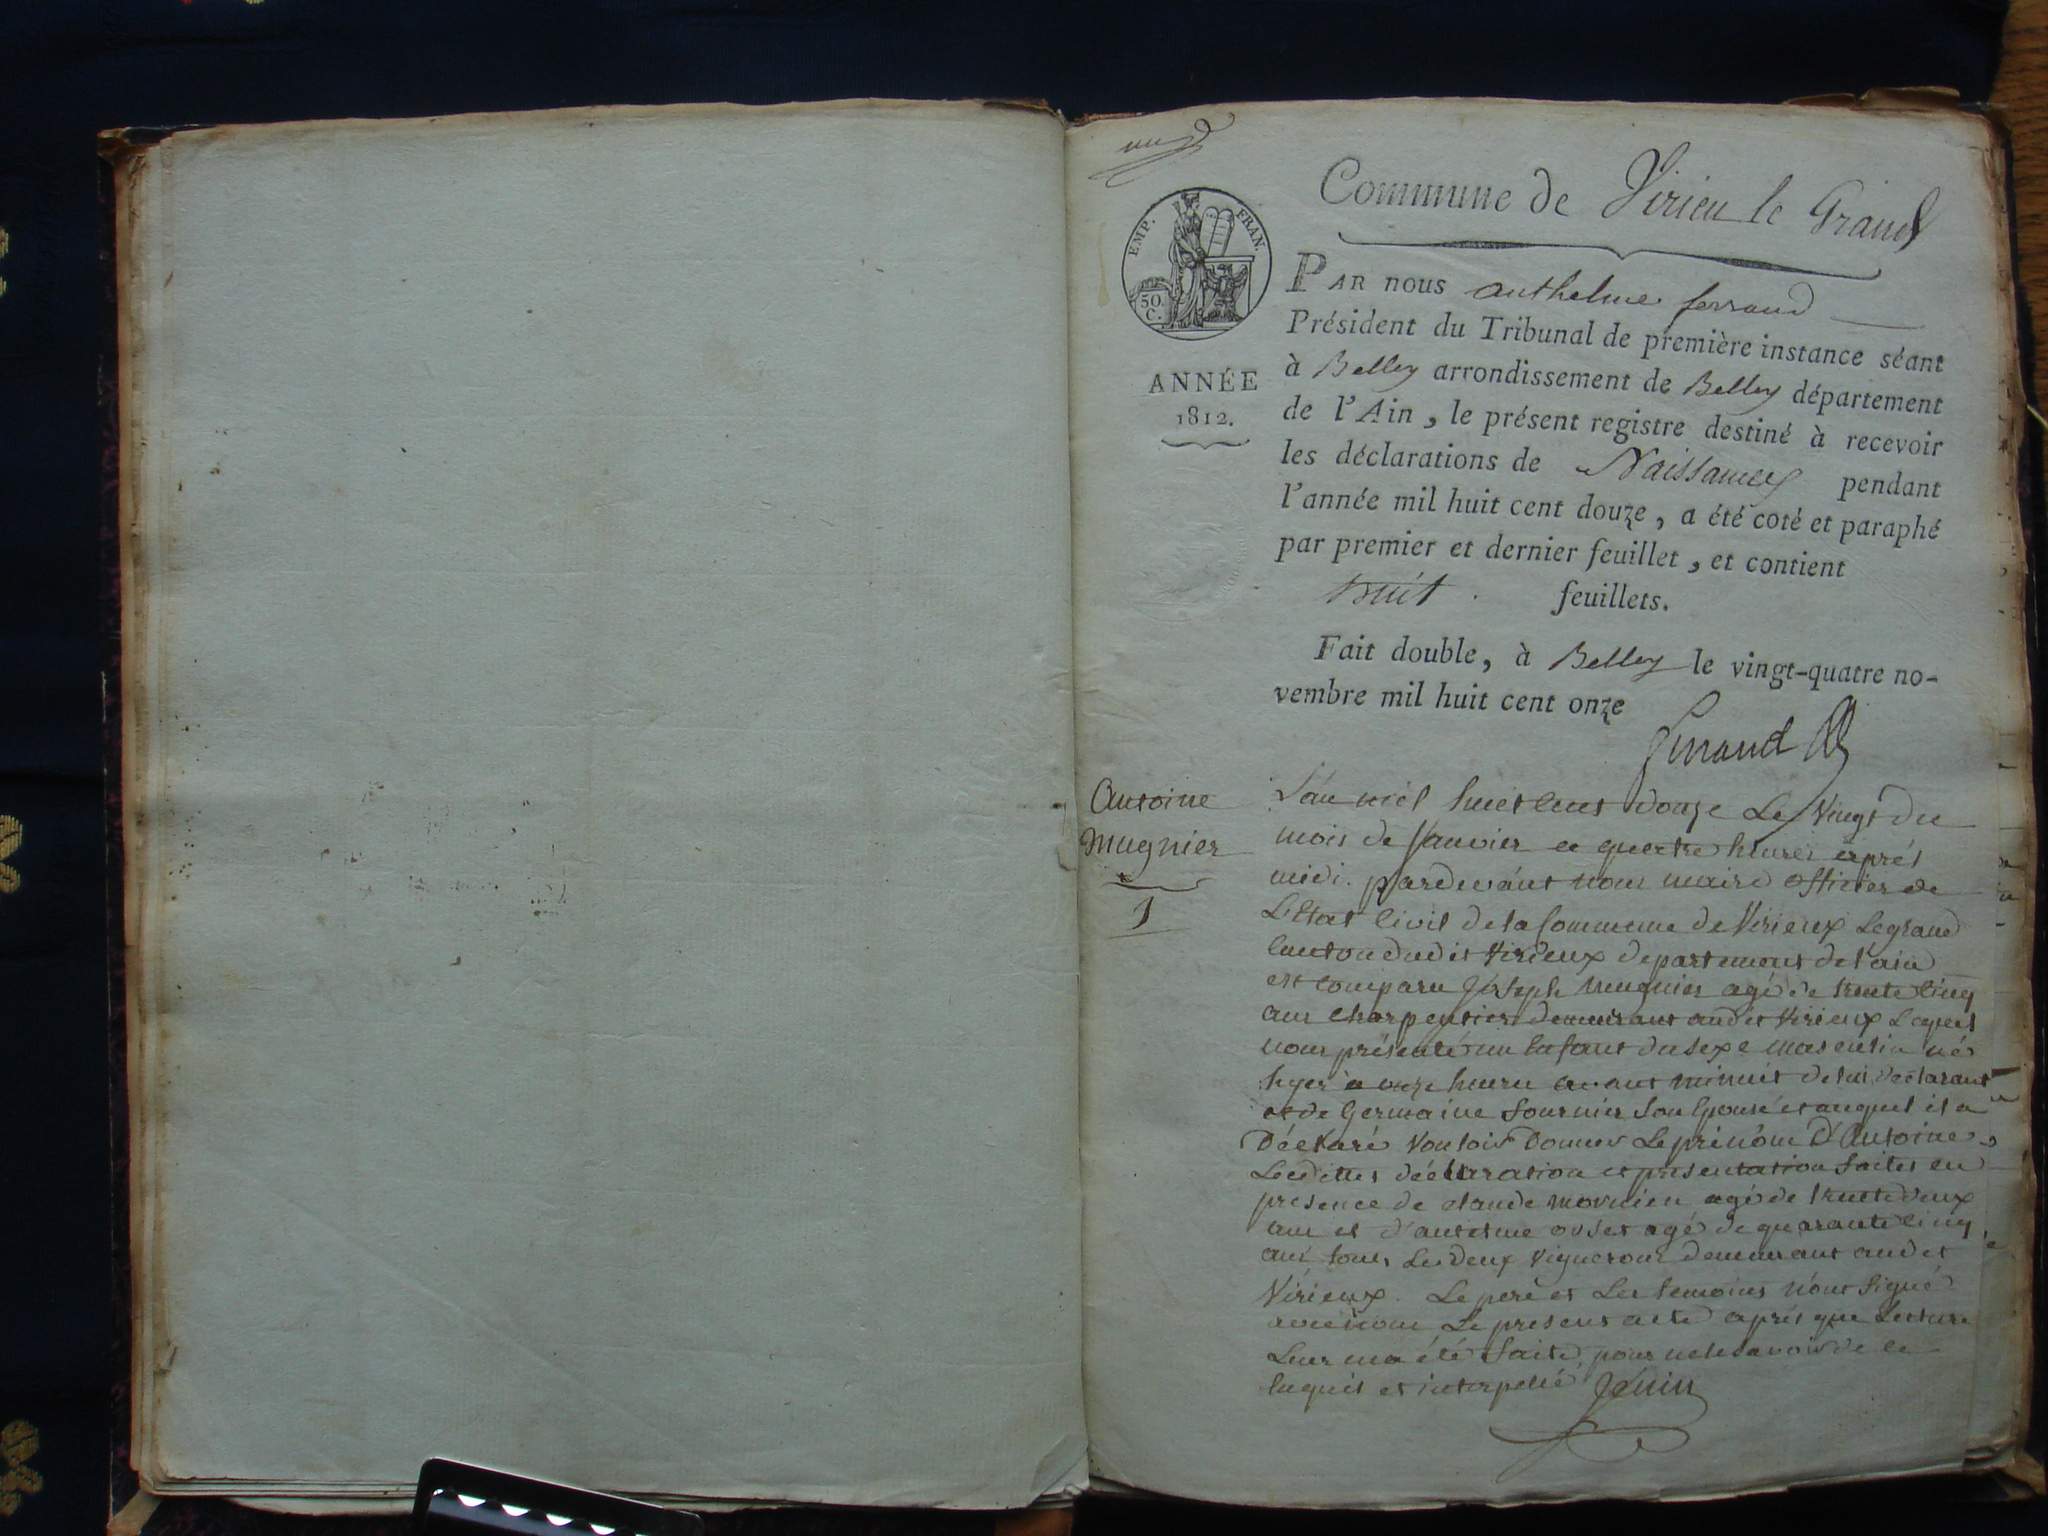 un
Commune de Virieu le Grand
EMP. FRAN.
50. C.
PAR nous anthelme ferrand
Président du Tribunal de première instance séant
à Belley arrondissement de Belley département
de l'Ain, le présent registre destiné à recevoir
les déclarations de Naissances pendant
l'année mil huit cent douze, a été coté et paraphé
par premier et dernier feuillet, et contient
huit feuillets.
ANNÉE
1812.
Fait double, à Belley le vingt-quatre no-
vembre mil huit cent onze
ferrand
Antoine
Mugnier
1
L'an mil huit cent douze Le Vingt du
mois de Janvier a quatre heures après
midi. pardevant nous maire officier de
L'Etat Civil de la Commune de Virieux Legrand
Canton dudit Virieux departement de l'ain
est comparu Joseph mugnier agé de trente cinq
ans charpentier demeurant audit Virieux Lequel
nous présenté un Enfant du sexe masculin né
hyer a onze heures avant minuit de lui déclarant
et de Germaine fournier son Epouse et auquel il a
Déclaré Vouloir Donner Le prénom D'Antoine
Lesdittes déclaration et presentation faites en
presence de claude mornieu agé de trente deux
ans et d'antelme agé de quarante cinq
ans tous Les deux vignerons demeurant audit
Virieux. Le pere et Les temoins n'ont signé
avec nous Le present acte après que Lecture
Leur en a été faite, pour ne le savoir de ce
enquis et interpellé Jenin